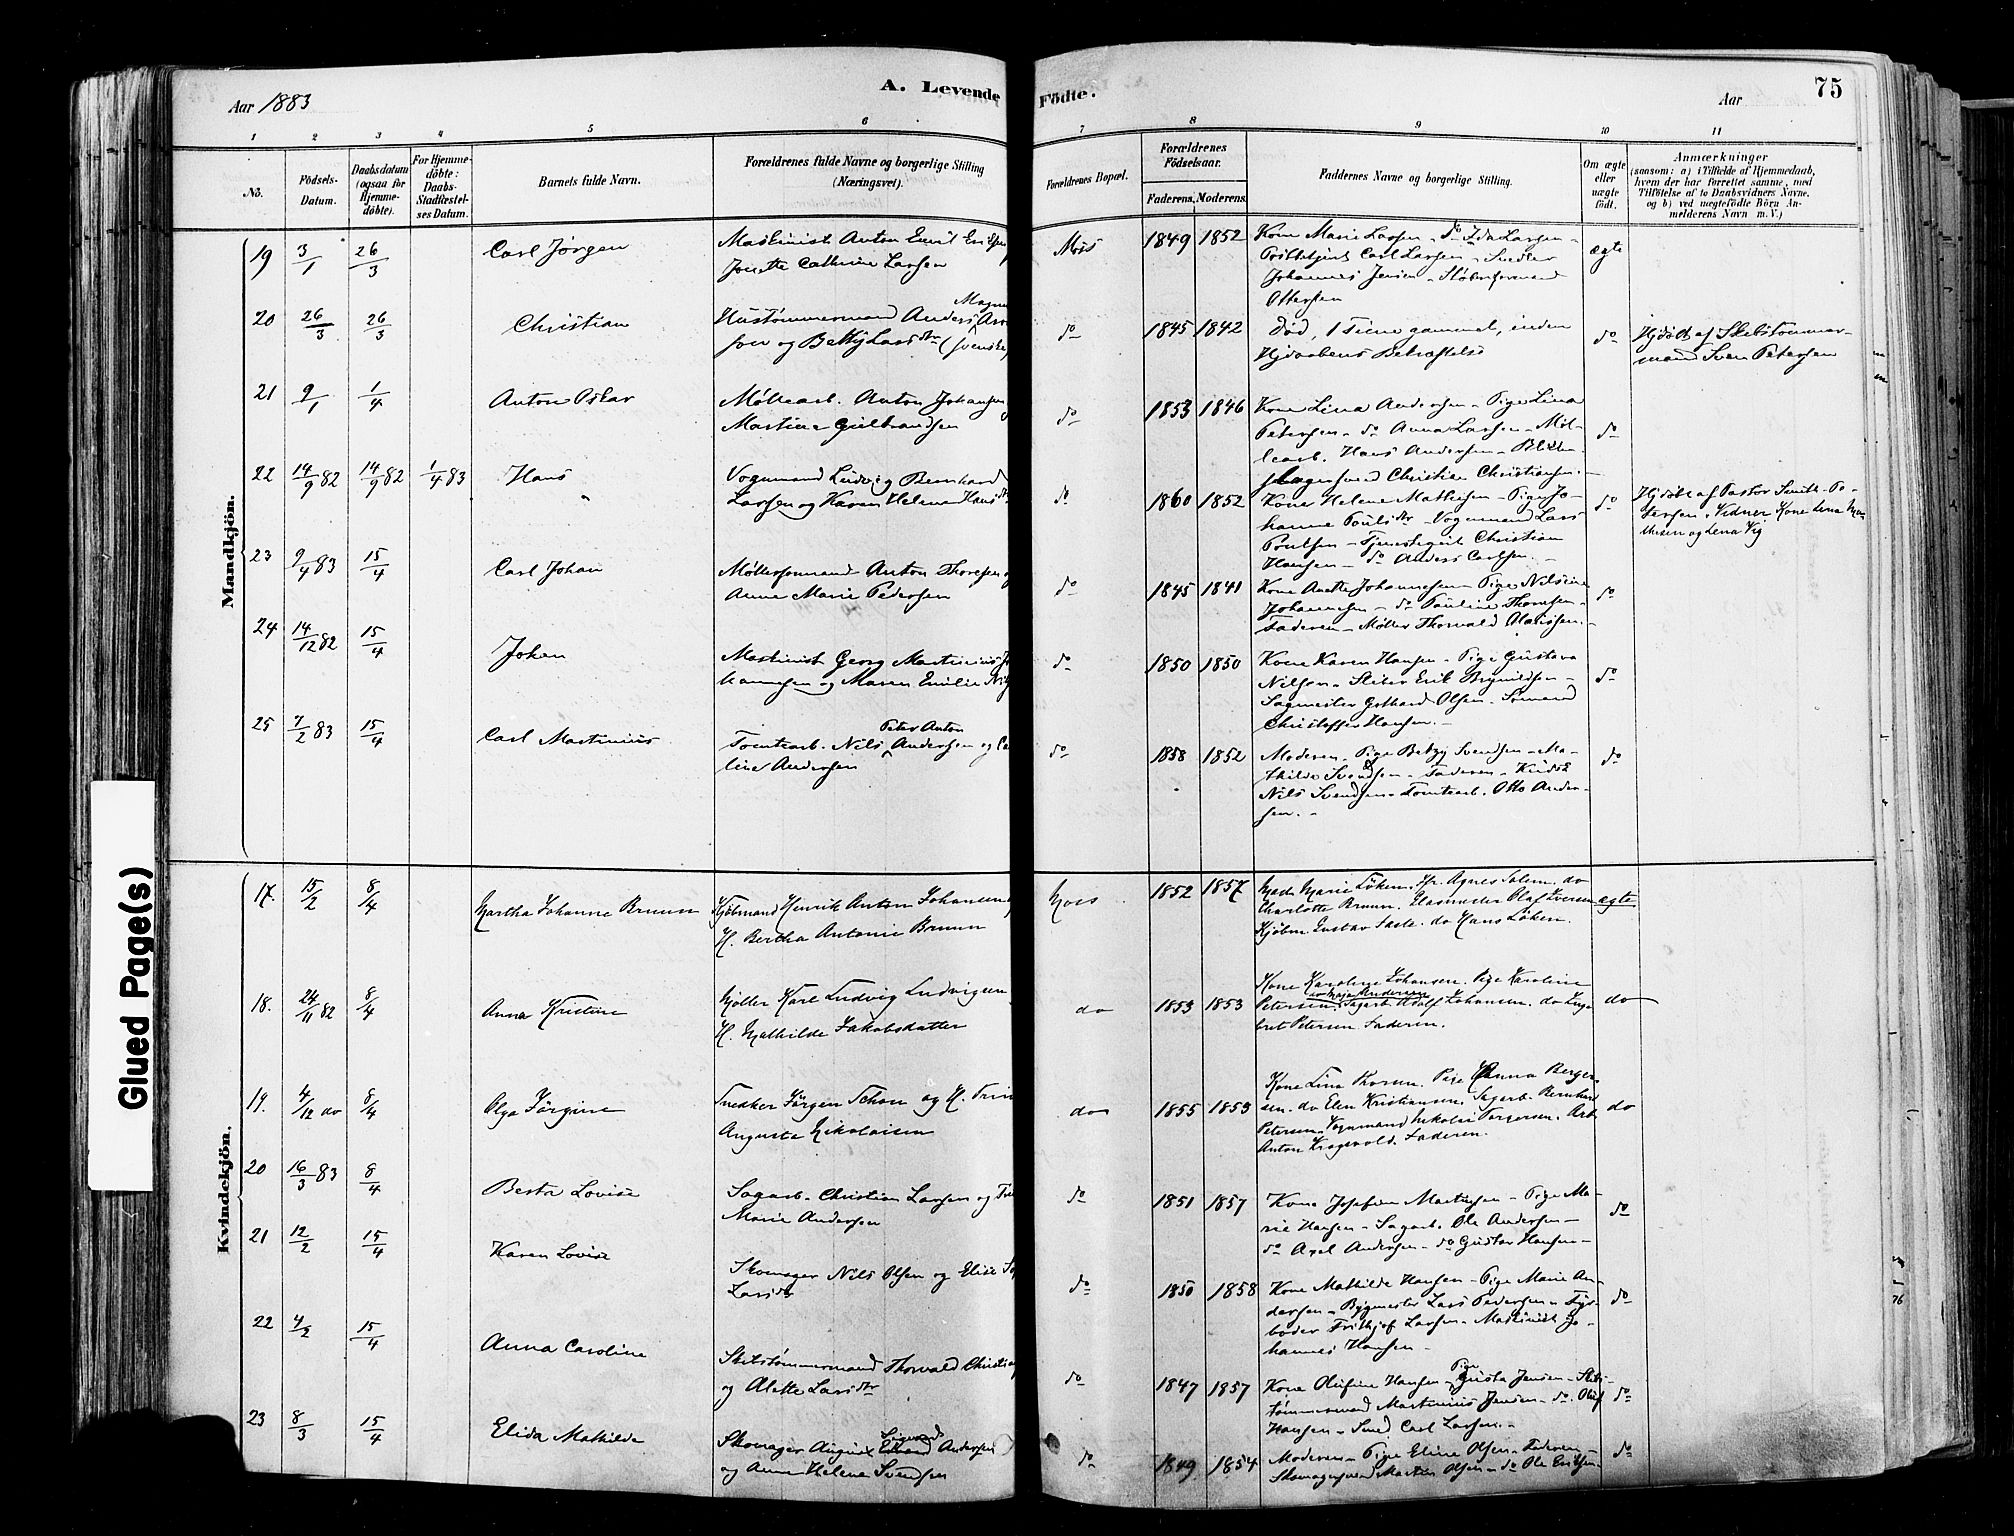 Aar 1883
A. Levende Födte.
Aar
75
1 2 3 4 5 6 7 8 9 10 11
No.
Födsels-Datum.
Daabsdatum (ogsaa for Hjemme-döbte).
For Hjemme-döbte: Daabs-Stadfæstel-ses Datum.
Barnets fulde Navn.
Forældrenes fulde Navne og borgerlige Stilling (Næringsvei).
Forældrenes Bopæl.
Forældrenes Födselsaar.
Faderens. Moderens.
Faddernes Navne og borgerlige Stilling.
Om ægte eller uægte födt.
Anmærkninger
(saasom: a) i Tilfælde af Hjemmedaab,
hvem der har forrettet samme, med
Tilföielse af to Daabsvidners Navne,
og b) ved uægtefödte Börn An-
melderens Navn m. V.)
Mandkjön.
19 3/1 26/3 Carl Jørgen
Maskinist Anton Emil
Jonette Cathrine Larsen
Mos 1849 1852
Kone Marie Larsen - do Ida Larsen -
Carl Larsen - Snedker
Johannes Jensen - Støberformand
Ottersen
ægte
20 26/3 26/3 Christian
Hustømmermand Anders
sen og Betty Larsdtr (svenske)
do 1845 1842
Død, 1 Time gammel, inden
Hjdaabens Bekræftelse
do
Hjdøbt af Skibstømmer-
mand Sven Petersen
21 9/1 1/4 Anton Oskar
Møllearb. Anton Johansen
Martine Gulbrandsen
do 1853 1846
Kone Lina Andersen - Pige Lina
Petersen - do Anna Larsen - Møl-
learb. Hans Andersen - Blikken-
slagersvend Christian Christiansen. -
do
22 14/9 82 14/9 82 1/4 83 Hans
Vognmand Ludvig Bernhard
Larsen og Karen Helena Hansdtr
do 1860 1852
Kone Helene Mathisen - Pige Jo-
hanne Poulsdtr - Vognmand Lars
Poulsen - Tjenestegut Christian
Hansen - do Anders Carlsen. -
do
Hjdøbt af Pastor Smith-Pe-
tersen. Vidner Kone Lena
og Lena Vig
23 9/4 83 15/4 Carl Johan
Møllerformand Anton Thoresen og
Anne Marie Pedersen
do 1845 1841
Kone Anette Johannesen - Pige Nilsine
Johannesen - do Pauline Thoresen -
Faderen - Møller Thorvald Olausen. -
do
24 14/12 82 15/4 Johan
Maskinist Georg Martinius Jo
hannesen og Maren Emilie Nils
do 1850 1850
Kone Karen Hansen - Pige Gustava
Nilsen - Sliber Erik Brynildsen -
Sagmester Gotthard Olsen - Sømand
Christoffer Hansen. -
do
25 7/2 83 15/4 Carl Martinius
Peter Anton
Tomtearb. Nils Andersen og Ca
line Andersen
do 1858 1852
Moderen - Pige Betzy Svendsen - Ma-
thilde Svendsen - Faderen - Kudsk
Nils Svendsen - Tomtearb. Otto Ander-
sen. -
do
Kvindekjön.
17. 15/2 8/4 Martha Johanne Bruun
Kjøbmand Henrik Anton Johansen
H. Bertha Antonie Bruun
Mos 1852 1857
Mad. Marie Løken. Fr. Agnes Salem. do
Charlotte Bruun. Glasmester Olaf Iversen
Kjøbm. Gustav Saste. do Hans Løken.
ægte
18. 24/11 82 8/4 Anna Kristine
Møller Karl Ludvig Ludvigsen
H. Mathilde Jakobsdatter
do 1853 1853
Kone Karoline Johansen. Pige Karoline
do Maja Andersen
Petersen. Sagarb. Adolf Johansen. do Inge
bret Petersen. Faderen.
do
19. 4/12 do 8/4 Olga Jørgine
Snedker Jørgen Schou og H. Trin
Augusta Nikolaisen
do 1855 1853
Kone Lina Thorsen. Pige Hanna Berger-
sen. do Elen Kristiansen. Sagarb. Bernhard
Petersen. Vognmand Nikolai Torgersen. Arb.
Anton Kragsvold. Faderen.
do
20 16/3 83 8/4 Berta Lovise
Sagarb. Christian Larsen og
Marie Andersen
do 1851 1857
Kone Josefine Martinsen - Pige Ma-
rie Hansen - Sagarb. Ole Andersen -
do Axel Andersen - do Gustav Hansen -
do
21 12/2 15/4 Karen Lovise
Skomager Nils Olsen og Elise
Larsdtr
do 1850 1858
Kone Mathilde Hansen - Pige Marie An-
dersen - Bygmester Lars Pedersen - Fyr-
bøder Frithjof Larsen - Maskinist Jo-
hannes Hansen -
do
22 4/2 15/4 Anna Caroline
Skibstømmermand Thorvald Christia
og Alette Larsdtr
do 1847 1857
Pige
Kone Olufine Hansen - Gusta Jensen - Skibs-
tømmermand Martinius Jensen - do. Oluf
Hansen - Smed Carl Larsen. -
do
23 8/3 15/4 Elida Mathilde
Skomager August Andersen
og Anne Helene Svendsen
do 1849 1854
Moderen - Pige Eline Olsen - Faderen -
Skomagersvend Martin Olsen - do Ole Eriksen
do
Glued Page(s)